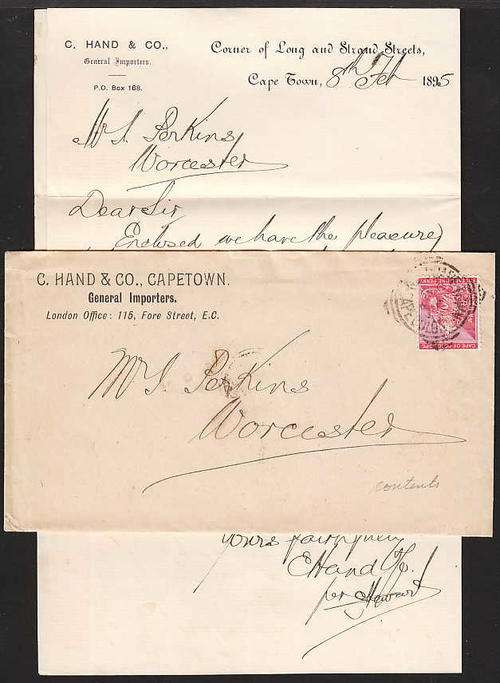 C. HAND & CO.,
General Importers.
P.O. Box 168.
Corner of Long and Strand Streets,
Cape Town, 8th Feb 1895
Mr S. Perkins
Worcester
Dear Sir
Enclosed we have the pleasure
C. HAND & CO., CAPETOWN.
General Importers.
London Office: 115, Fore Street, E.C.
Mr S. Perkins
Worcester
contents
yours faithfully
C Hand & Co.
per